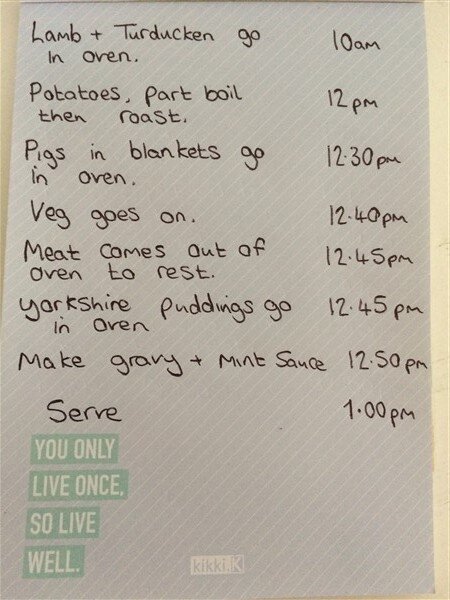 Lamb + Turducken go 10am
in oven.
Potatoes, part boil 12pm
then roast.
Pigs in blankets go 12.30pm
in oven.
Veg goes on. 12.40pm
Meat comes out of 12.45pm
oven to rest.
Yorkshire puddings go 12.45pm
in oven
Make gravy + Mint Sauce 12.50pm
Serve 1.00pm
YOU ONLY
LIVE ONCE,
SO LIVE
WELL.
kikki.K